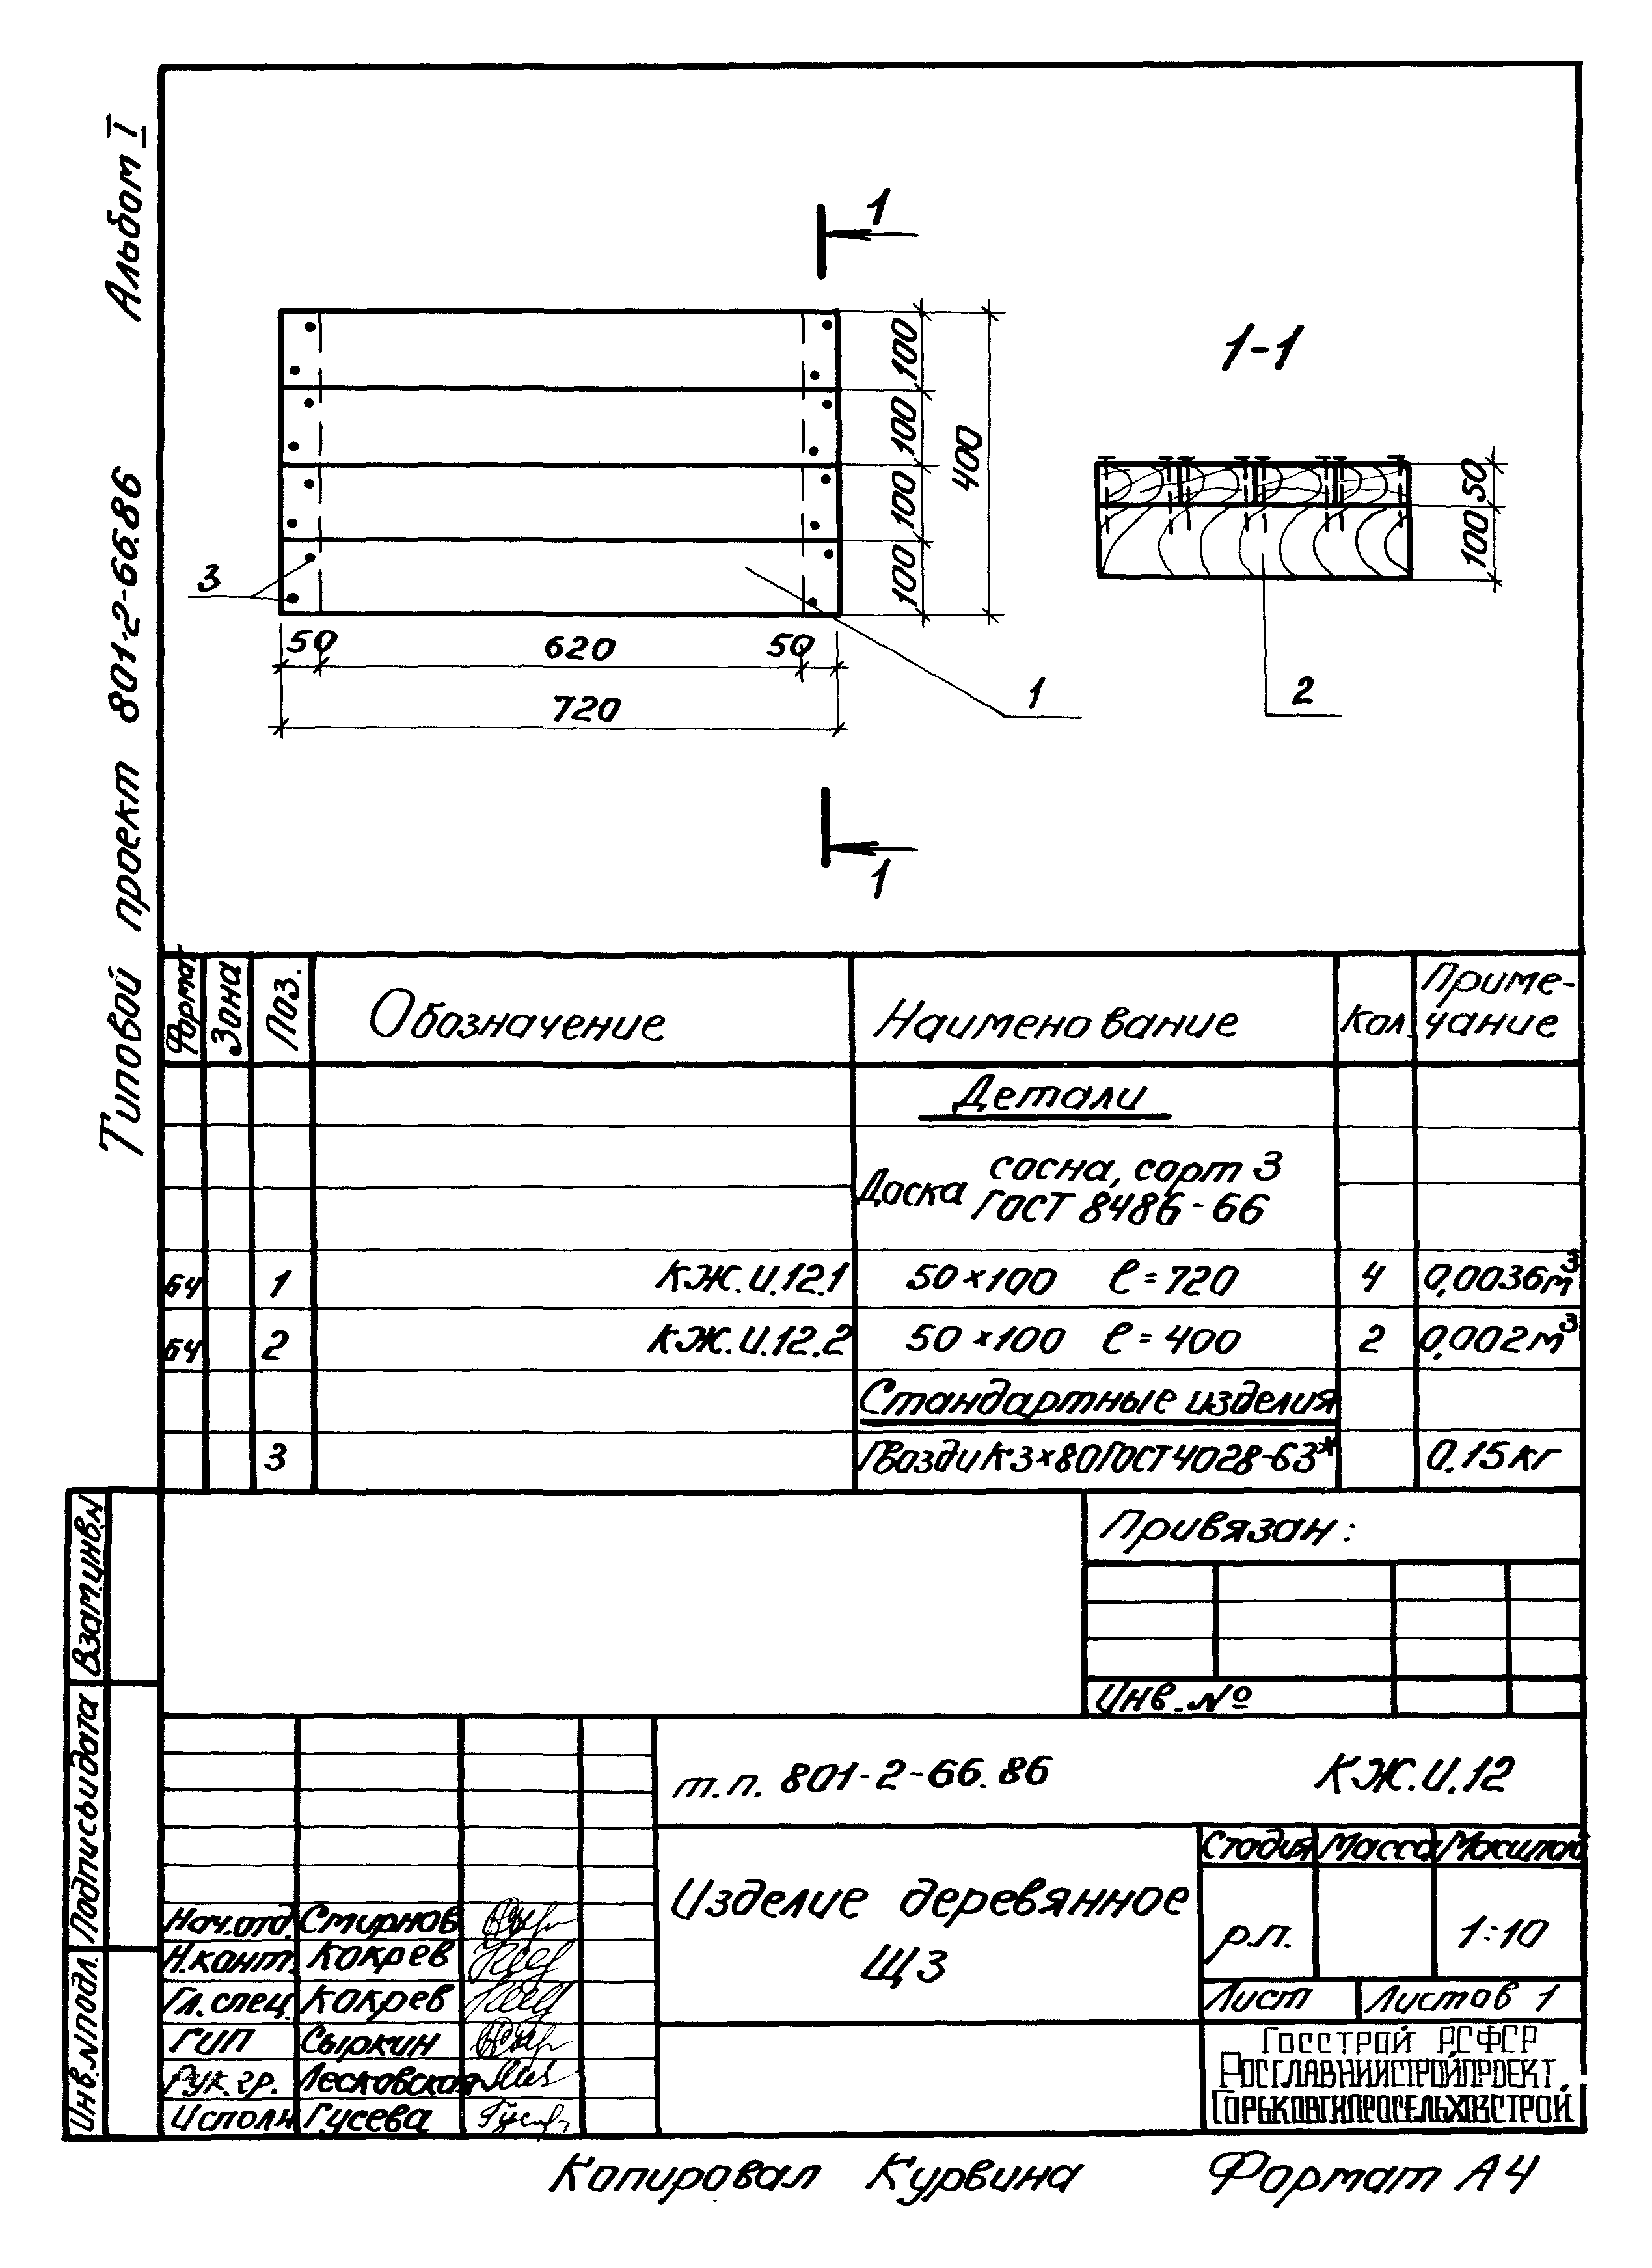 Типовой проект 801-2-66.86 Альбом I
1
100
100
100
100
400
3
50 620 50
720
1
1
1-1
50
100
2
Формат
Зона
Поз.
Обозначение
Наименование
Кол.
Приме-
чание
Детали
Доска сосна, сорт 3
ГОСТ 8486-66
БЧ 1 КЖ.И.12.1 50×100 ℓ=720 4 0,0036м³
БЧ 2 КЖ.И.12.2 50×100 ℓ=400 2 0,002м³
Стандартные изделия
3 Гвозди К3×80 ГОСТ 4028-63* 0.15кг
Привязан:
Инв.№
Взам.инв.№
Подпись и дата
Инв.№подл.
т.п. 801-2-66.86 КЖ.И.12
Изделие деревянное
Щ3
Стадия Масса Масштаб
р.п. 1:10
Лист Листов 1
Нач.отд. Смирнов
Н.конт. Кокрев
Гл.спец. Кокрев
ГИП Сыркин
Рук.гр. Лесковская
Исполн. Гусева
Госстрой РСФСР
Росглавниистройпроект
Горьковгипросельхозстрой
Копировал Курвина Формат А4